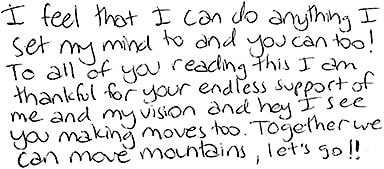 I feel that I can do anything I
set my mind to and you can too!
To all of you reading this I am
thankful for your endless support of
me and my vision and hey I see
you making moves too. Together we
can move mountains, let's go!!